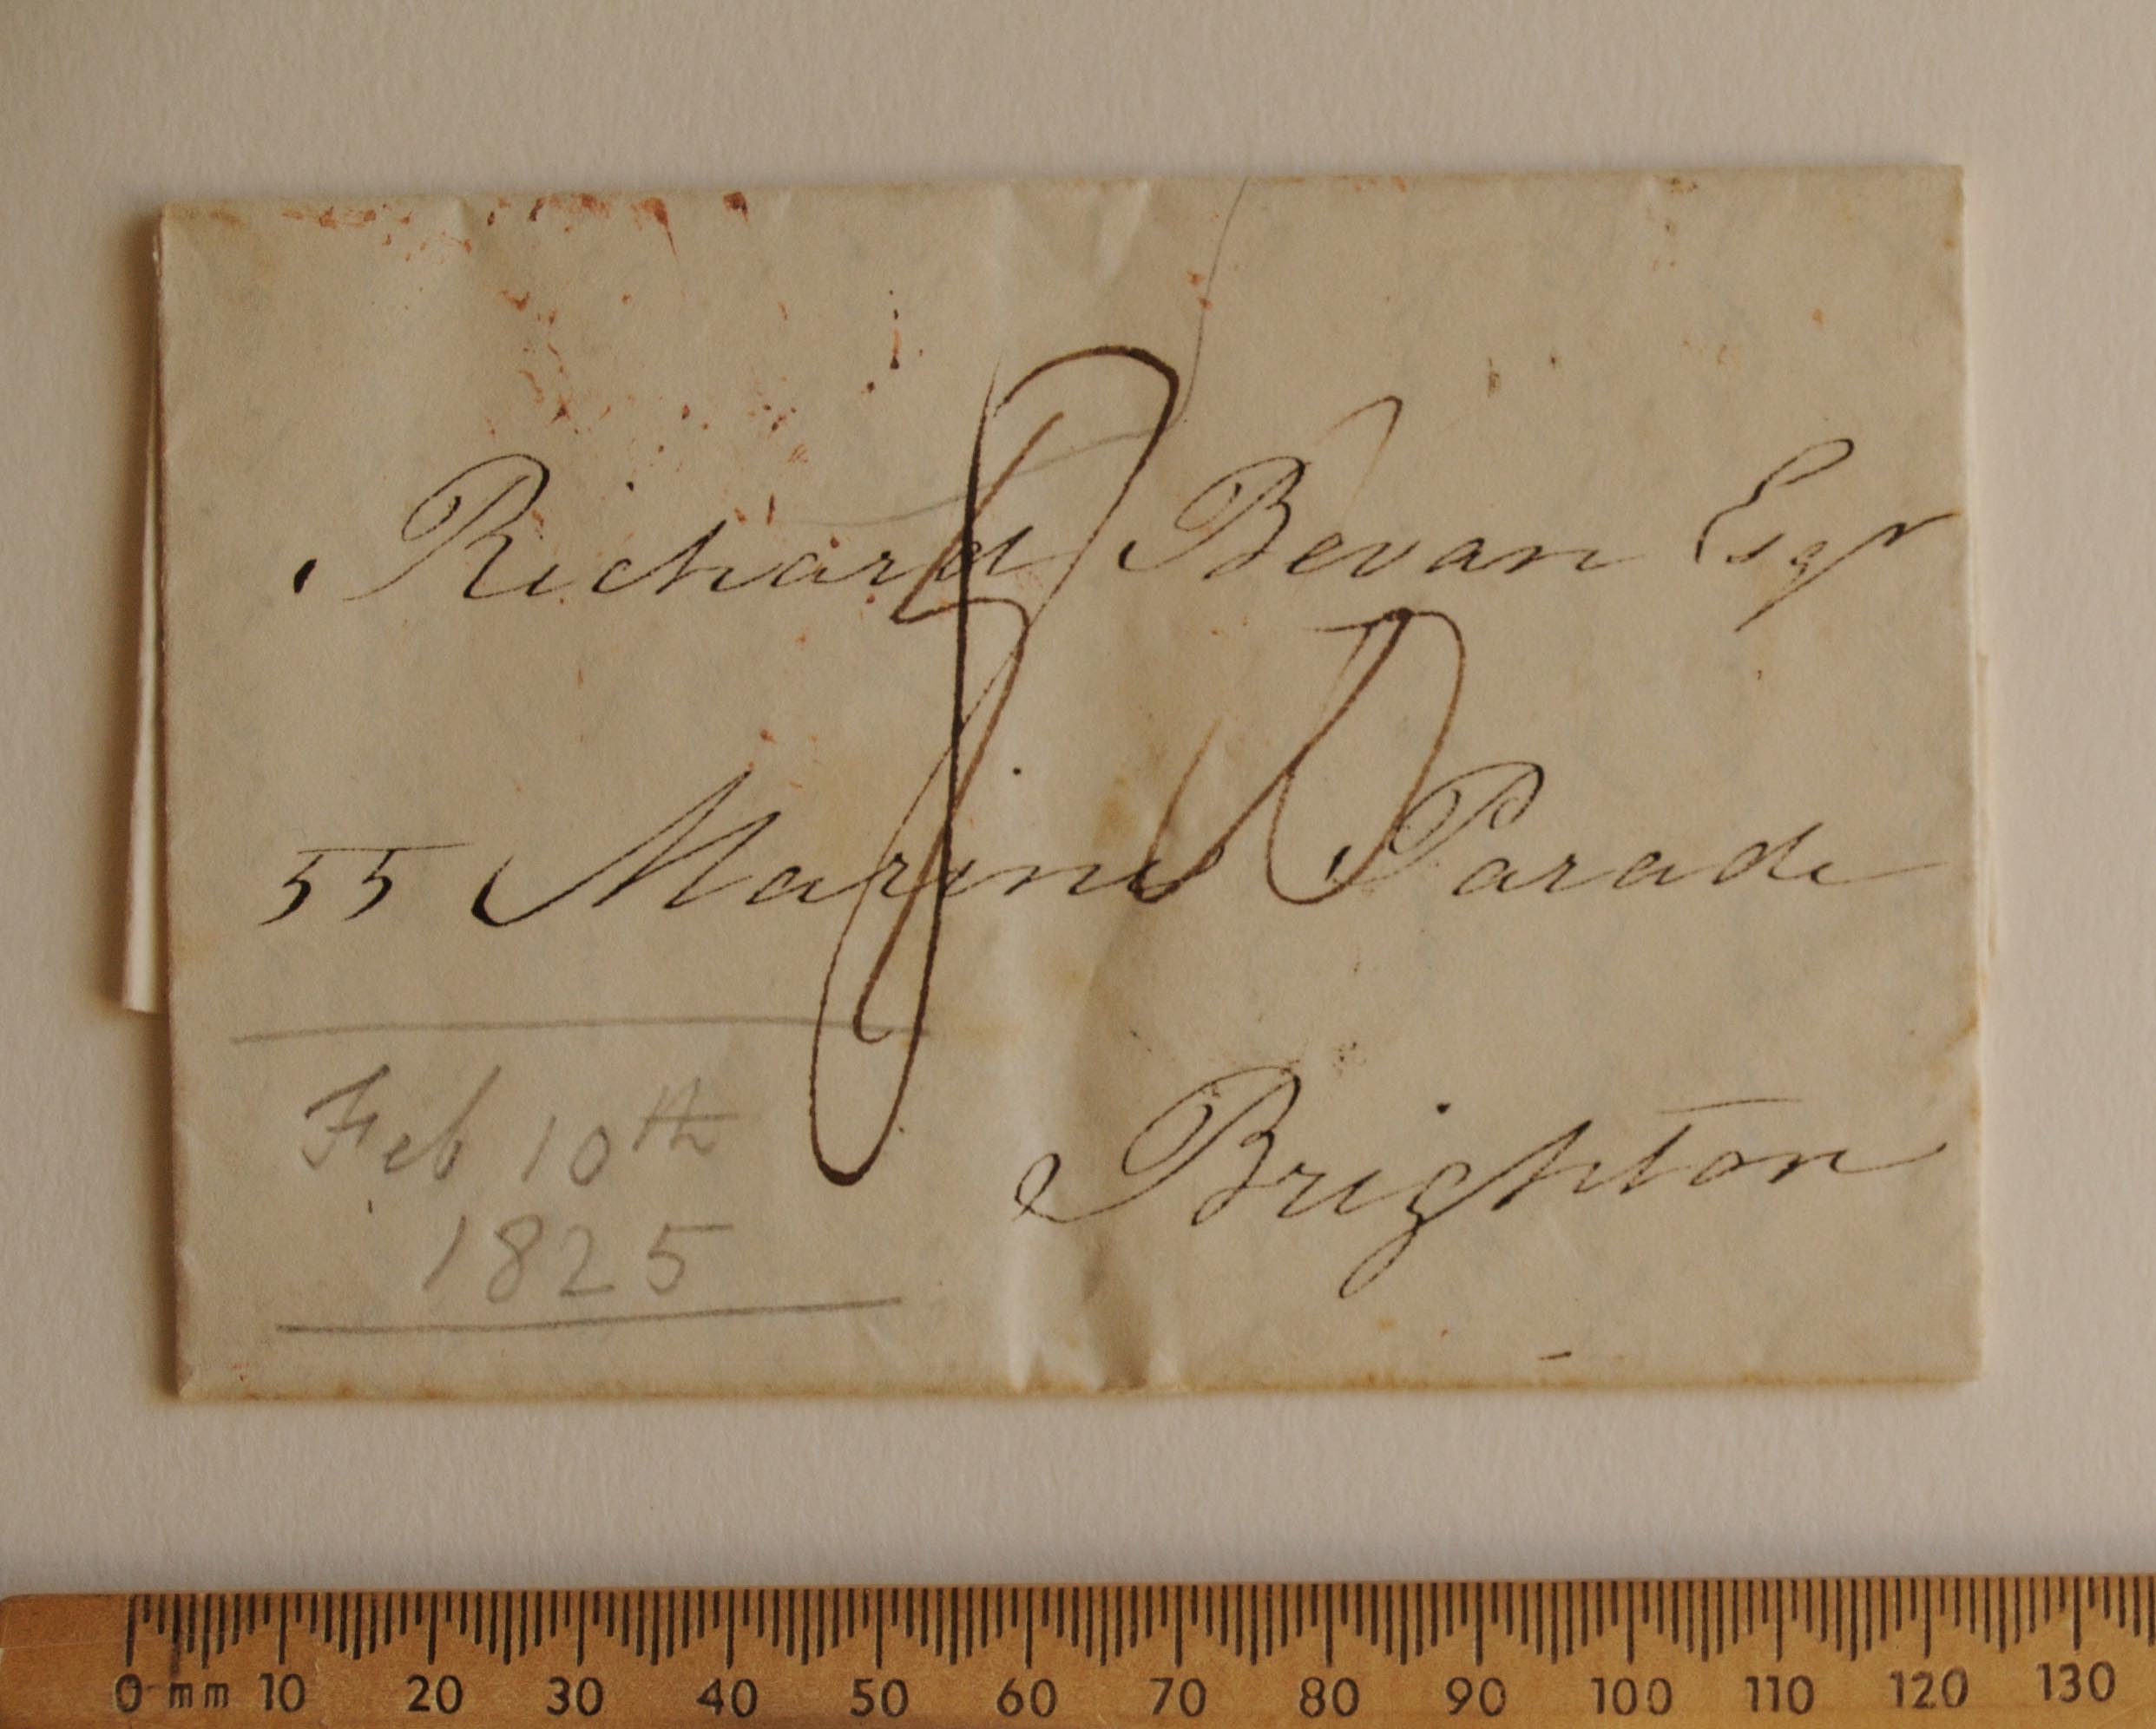 Richard Bevan Esqr
55 Marine Parade
Brighton
Feb 10th
1825
0 mm 10 20 30 40 50 60 70 80 90 100 110 120 130